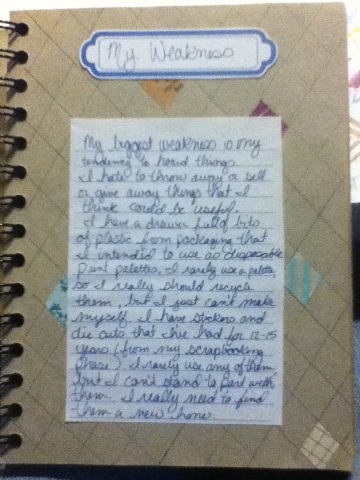 My Weakness
My biggest weakness is my
tendency to hoard things.
I hate to throw away or sell
or give away things that I
think could be useful.
I have a drawer full of bits
of plastic from packaging that
I intended to use as disposable
paint palettes. I rarely use a palette
so I really should recycle
them, but I just can't make
myself. I have stickers and
die cuts that I've had for 12-15
years (from my scrapbooking
phase). I rarely use any of them
but I can't stand to part with
them. I really need to find
them a new home.